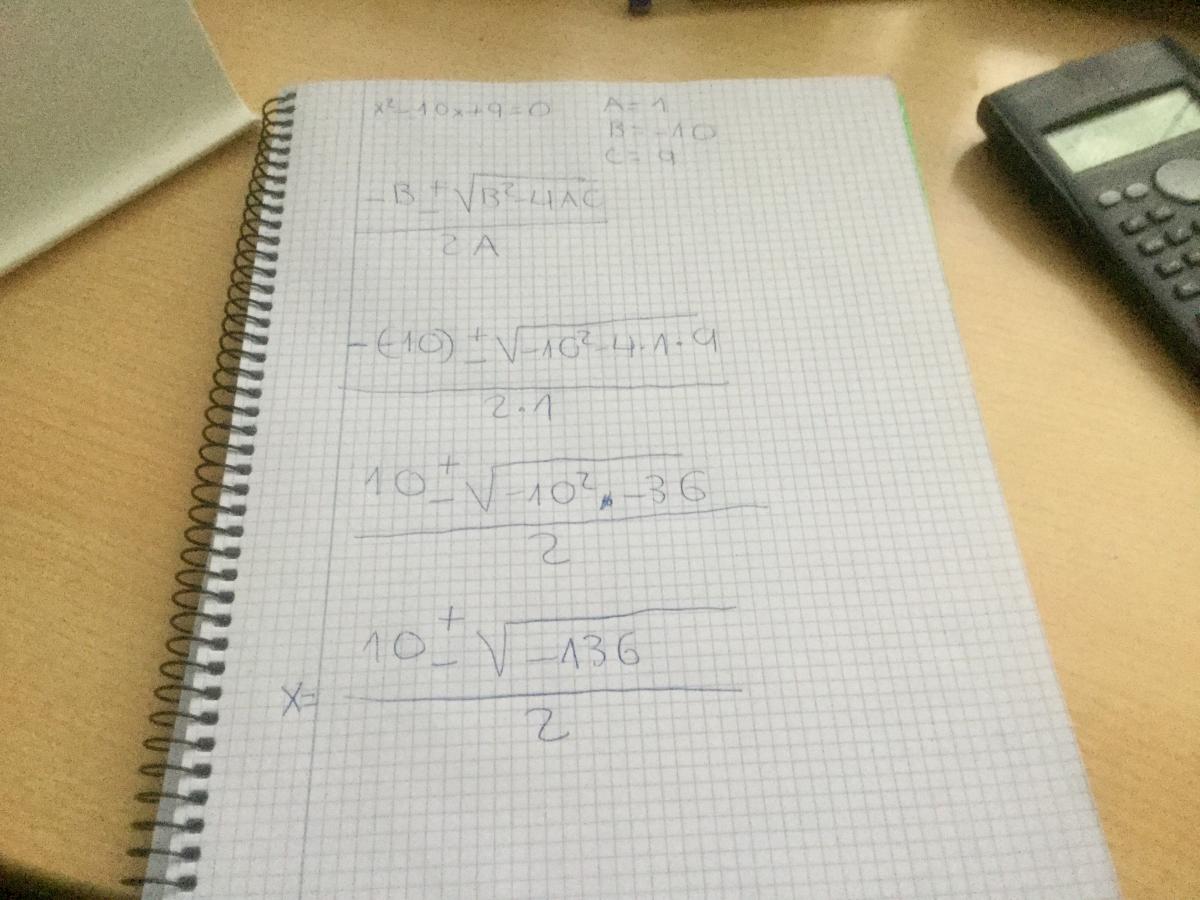 x²-10x+9=0 A=1
B=-10
C=9
-B±√B²-4AC
2A
-(-10)±√-10²-4·1·9
2·1
10±√-10²-36
2
10±√-136
x=
2